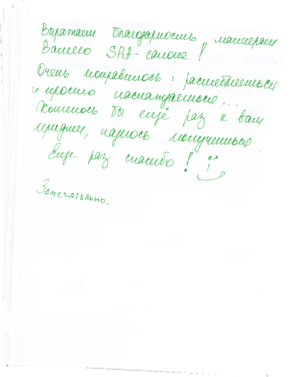 Выражаем благодарность мастерам
Вашего SPA-салона!
Очень понравилось: расслабляешься
и просто наслаждаешься...
Хотелось бы ещё раз к вам
придти, надеюсь получится.
Ещё раз спасибо!
Замечательно.